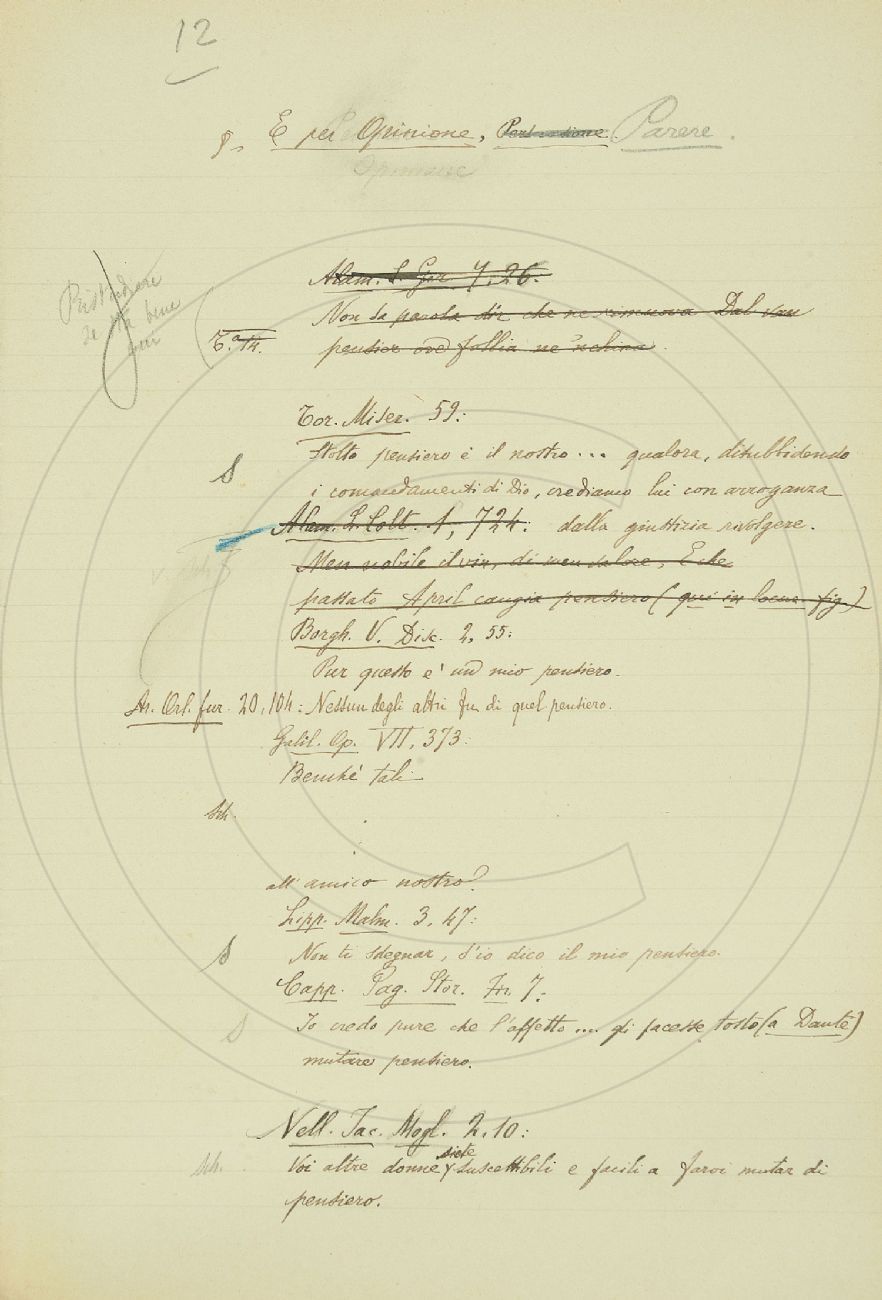 12
8, E per Opinione, Persuasione Parere.
Opinione
Alam. L. Gir. 7. 26.
Non sa parola dir che ne rimuova Dal van
T.° 14. pensier ov'è follia ne 'nchina.
Tor. Miser. 59:
S Stolto pensiero è il nostro... qualora, disubbidendo
i comandamenti di Dio, crediamo lui con arroganza
dalla giustizia rivolgere.
Alam. L. Colt. 1, 724:
Men nobile il vin, di men valore, E che
passato April cangia pensiero (qui in locuz. fig.)
Borgh. V. Disc. 2, 55:
Pur questo e' un mio pensiero.
Ar. Orl. fur. 20, 104: Nessun degli altri fu di quel pensiero.
Galil. Op. VII, 373:
Benchè tali
Sch.
all'amico nostro?
Lipp. Malm. 3, 47:
S Non ti sdegnar, s'io dico il mio pensiero.
Capp. Pag. Stor. Fir. 7:
S Io credo pure che l'affetto... gli facesse tosto (a Dante)
mutare pensiero.
Nell. Jac. Mogl. 2. 10:
Sch. Voi altre donne siete suscettibili e facili a farvi mutar di
pensiero.